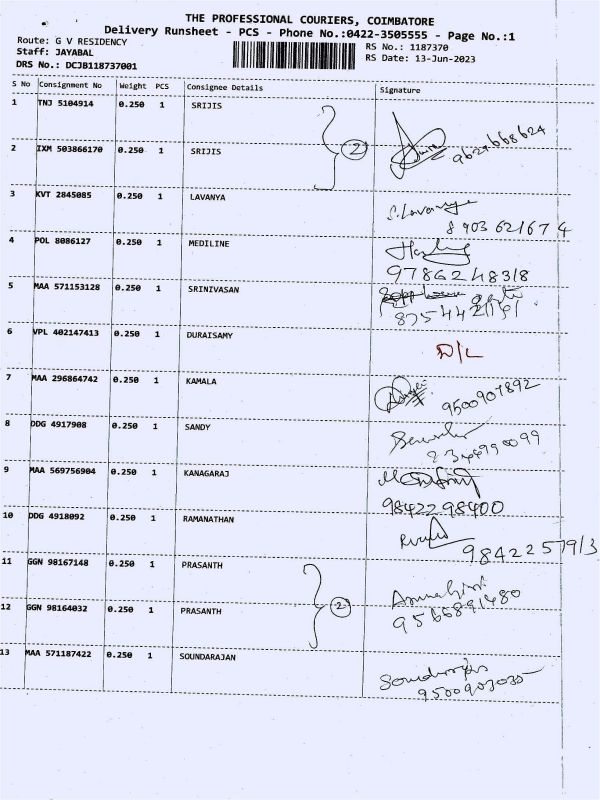 THE PROFESSIONAL COURIERS, COIMBATORE
Delivery Runsheet - PCS - Phone No.:0422-3505555 - Page No.:1
Route: G V RESIDENCY
RS No.: 1187370
Staff: JAYABAL
RS Date: 13-Jun-2023
DRS No.: DCJB118737001
S No Consignment No Weight PCS Consignee Details Signature
1 TNJ 5104914 0.250 1 SRIJIS
2 IXM 503866170 0.250 1 SRIJIS 2
3 KVT 2845085 0.250 1 LAVANYA S.Lavanya
8903621674
4 POL 8086127 0.250 1 MEDILINE
9786248318
5 MAA 571153128 0.250 1 SRINIVASAN
6 VPL 402147413 0.250 1 DURAISAMY D/L
7 MAA 296864742 0.250 1 KAMALA
9500907892
8 DDG 4917908 0.250 1 SANDY
9 MAA 569756904 0.250 1 KANAGARAJ
9842298400
10 DDG 4918092 0.250 1 RAMANATHAN
9842257913
11 GGN 98167148 0.250 1 PRASANTH
12 GGN 98164032 0.250 1 PRASANTH 2
9566891480
13 MAA 571187422 0.250 1 SOUNDARAJAN